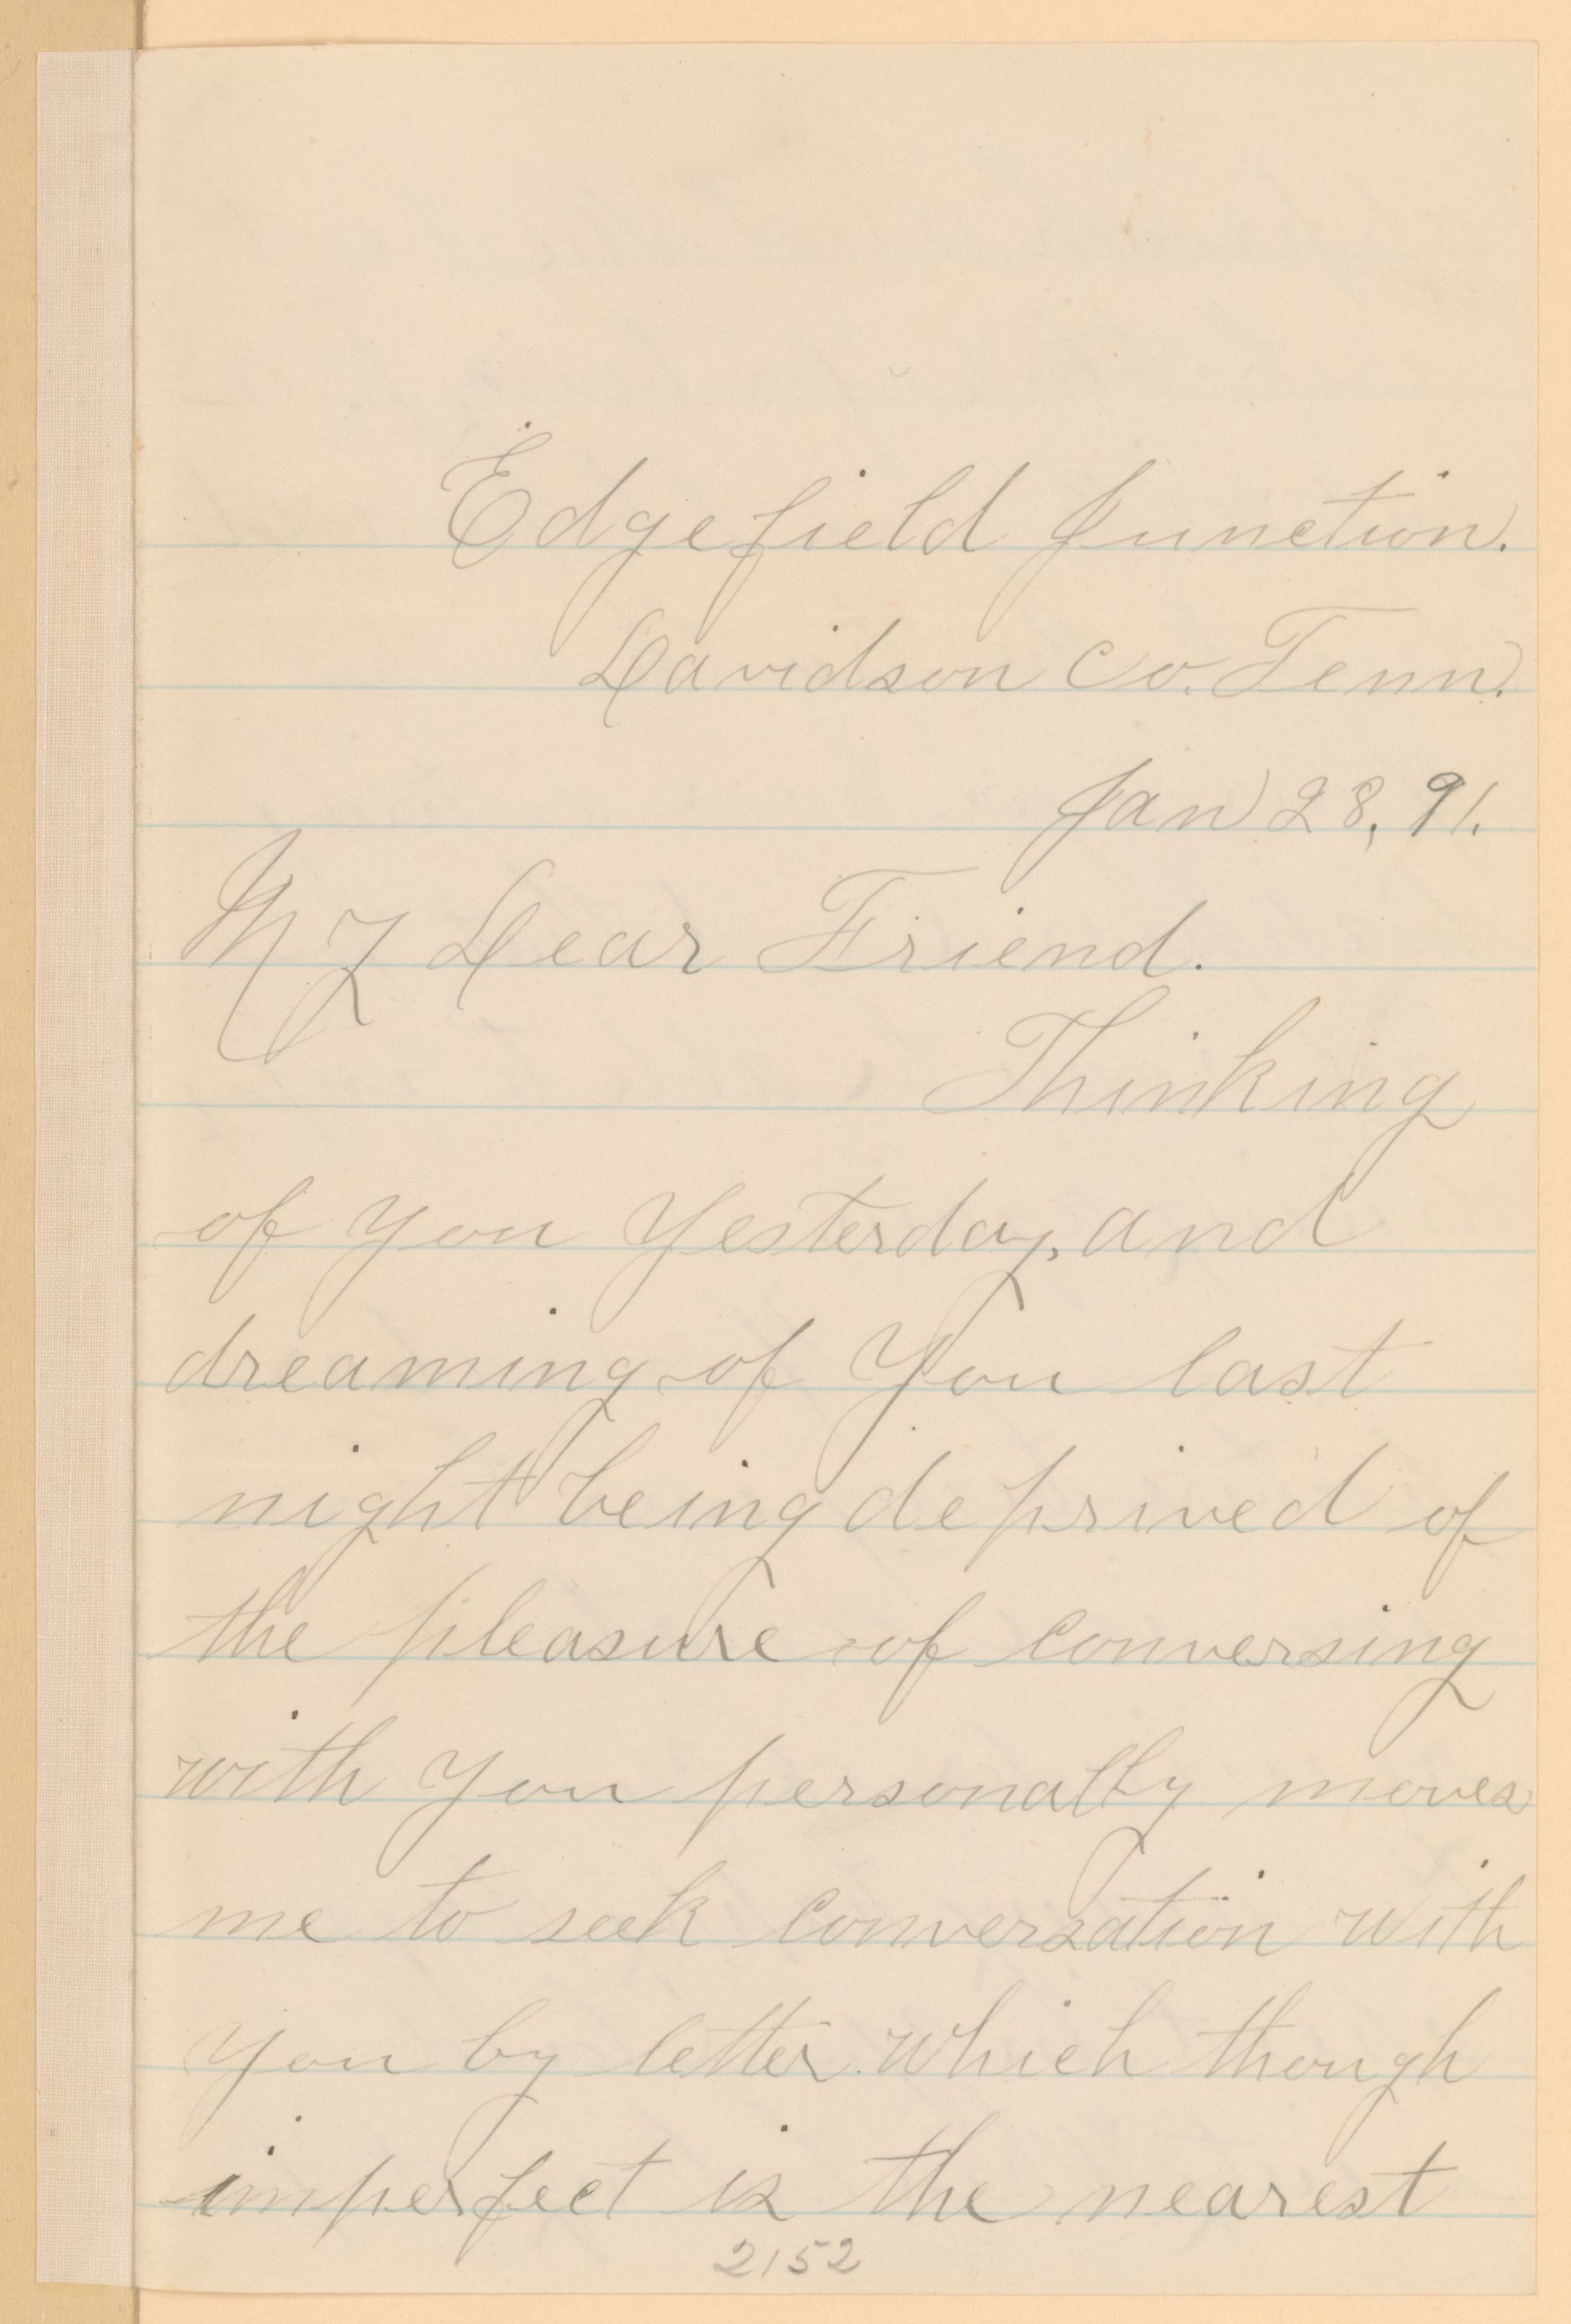 Edgefield Junction.
Davidson Co. Tenn.
Jan 28, 91.
My Dear Friend.
Thinking
of you Yesterday, and
dreaming of You last
night being deprived of
the pleasure of conversing
with You personally moves
me to seek conversation with
you by letter which though
imperfect is the nearest
2152